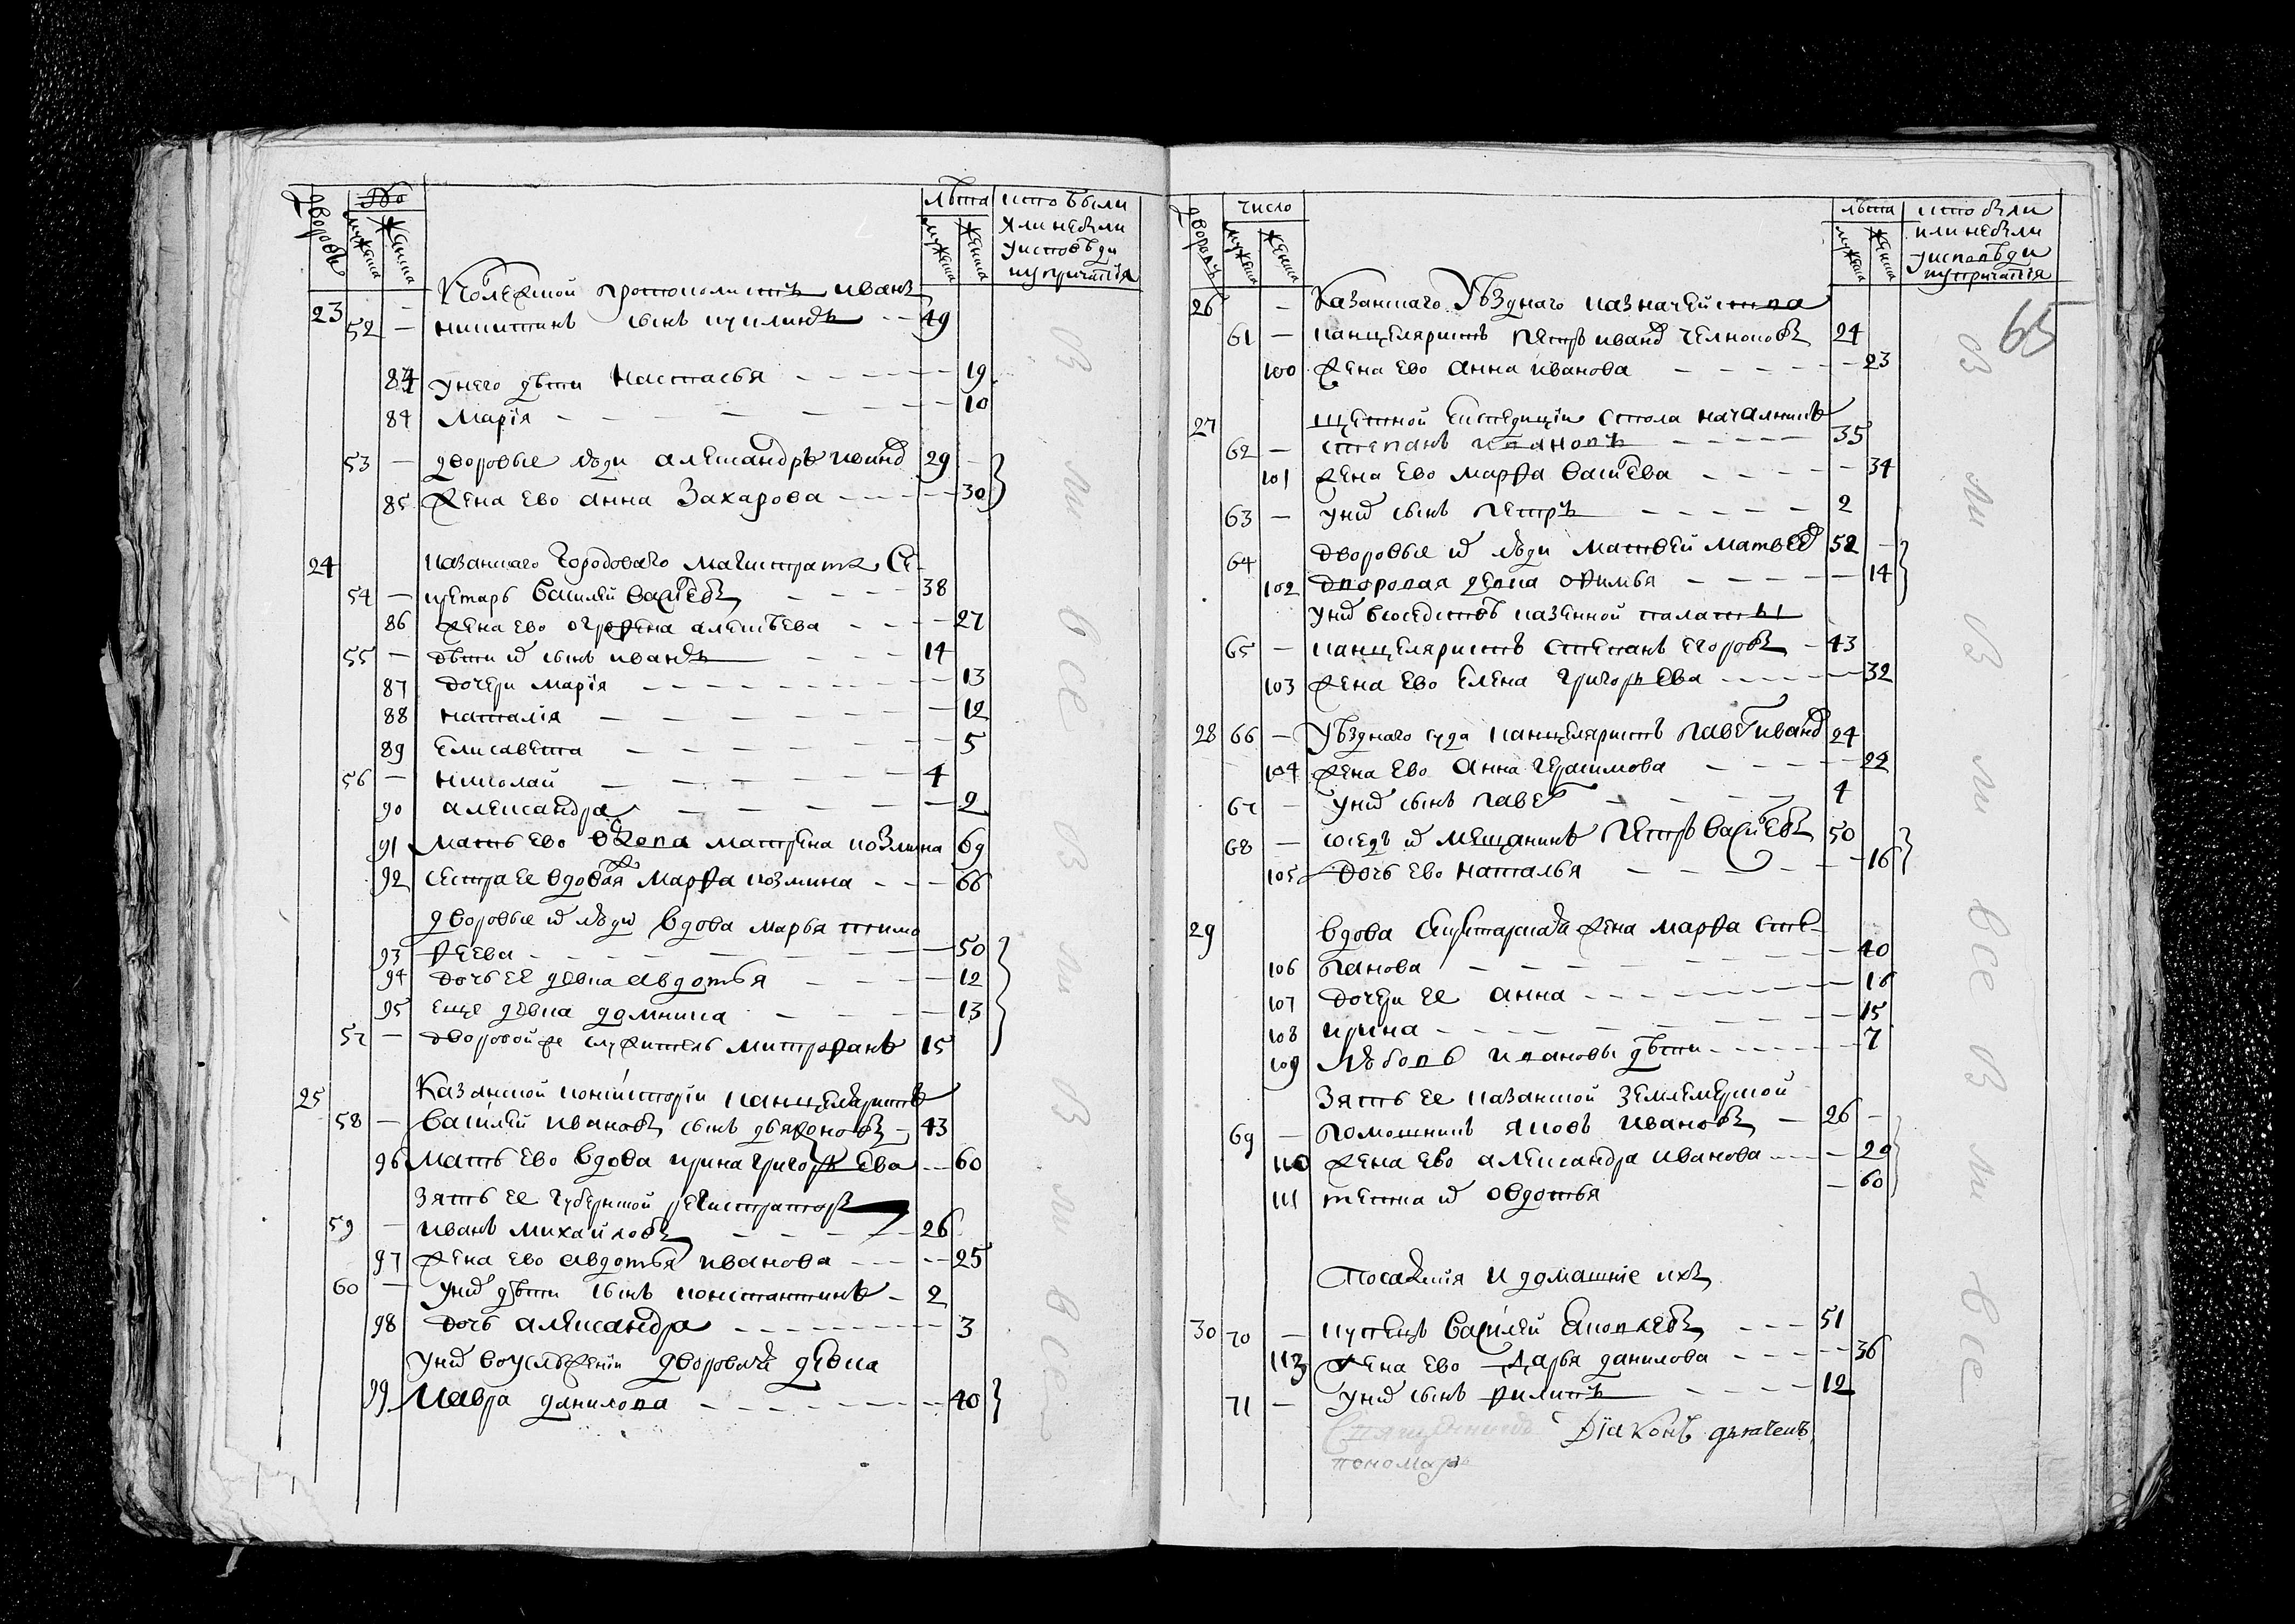 дворовъ
мужеска
женска
лѣта
мужеска
женска
исто были
или небыли
уисповѣди
иупричатія
23 Колежской протоколистъ иванъ
52 — никитинъ сынъ — 49
83 унего дѣти Настасья — 19
84 Марія — 10
53 — дворовые люди александръ иванов 29
85 жена ево анна Захарова — 30
24 казанскаго Городоваго магистрата Се-
54 — кретарь Василей Васильевъ — 38
86 жена ево огрофена алексѣева — 27
55 — дѣти их сынъ иванъ — 14
87 дочери марія — 13
88 наталія — 12
89 Елисавета — 5
56 — николай — 4
90 александра — 2
91 мать ево вдова матрена козмина 69
92 сестра ее вдовая марфа козмина — 66
дворовые их люди вдова марья тимо
93 феева — 50
94 дочь ее девка авдотья — 12
95 еще девка домника — 13
57 — дворовой же служитель митрофанъ 15
25 Казанской консисторіи канцеляристъ
58 — Василей ивановъ сынъ дьяконовъ — 43
96 мать ево вдова ирина григорьева — 60
Зять ее губернской регистраторъ
59 — иванъ михайловъ — 26
97 жена ево авдотья иванова — 25
60 — уних дѣти сынъ константинъ — 2
98 дочь александра — 3
уних воуслуженіи дворовая девка
99 Мавра данилова — 40
оз ли все оз ли оз ли все
59
дворовъ
число
мужеска
женска
лѣта
мужеска
женска
исто были
или небыли
уисповѣди
иупричатія
26 — Казанскаго Уѣзднаго казначейства
61 — канцеляристъ петръ иванов челноковъ 24
100 жена ево анна иванова — 23
27 щетной Експедиціи стола началникъ
62 — степанъ ивановъ — 35
101 жена ево марфа васильева — 34
63 — уних сынъ петръ — 2
64 дворовые их люди матвей матвеев 52 —
102 дворовая девка офимья — 14
уних всоседствѣ казенной палаты
65 — канцеляристъ степанъ егоровъ — 43
103 жена ево елена григорьева — 32
28 66 — Уѣзднаго суда канцеляристъ павел иванов 24
104 жена ево анна герасимова — 22
67 — уних сынъ павел — 4
68 — соседъ их мещанинъ петръ васильевъ 50
105 дочь ево наталья — 16
29 вдова секретарская жена марфа сте-
106 панова — 40
107 дочери ее анна — 16
108 ирина — 15
109 любовь ивановы дѣти — 7
Зять ее казанской землемерской
69 — помошникъ яковъ ивановъ — 26 —
110 жена ево александра иванова — 20
111 тетка их овдотья — 60
Посадскія и домашніе ихъ
30 70 — купецъ василей — 51
113 жена ево дарья данилова — 36
71 — уних сынъ филипъ — 12
Священникъ Діаконъ дьячекъ
пономарь
оз ли оз ли все оз ли все